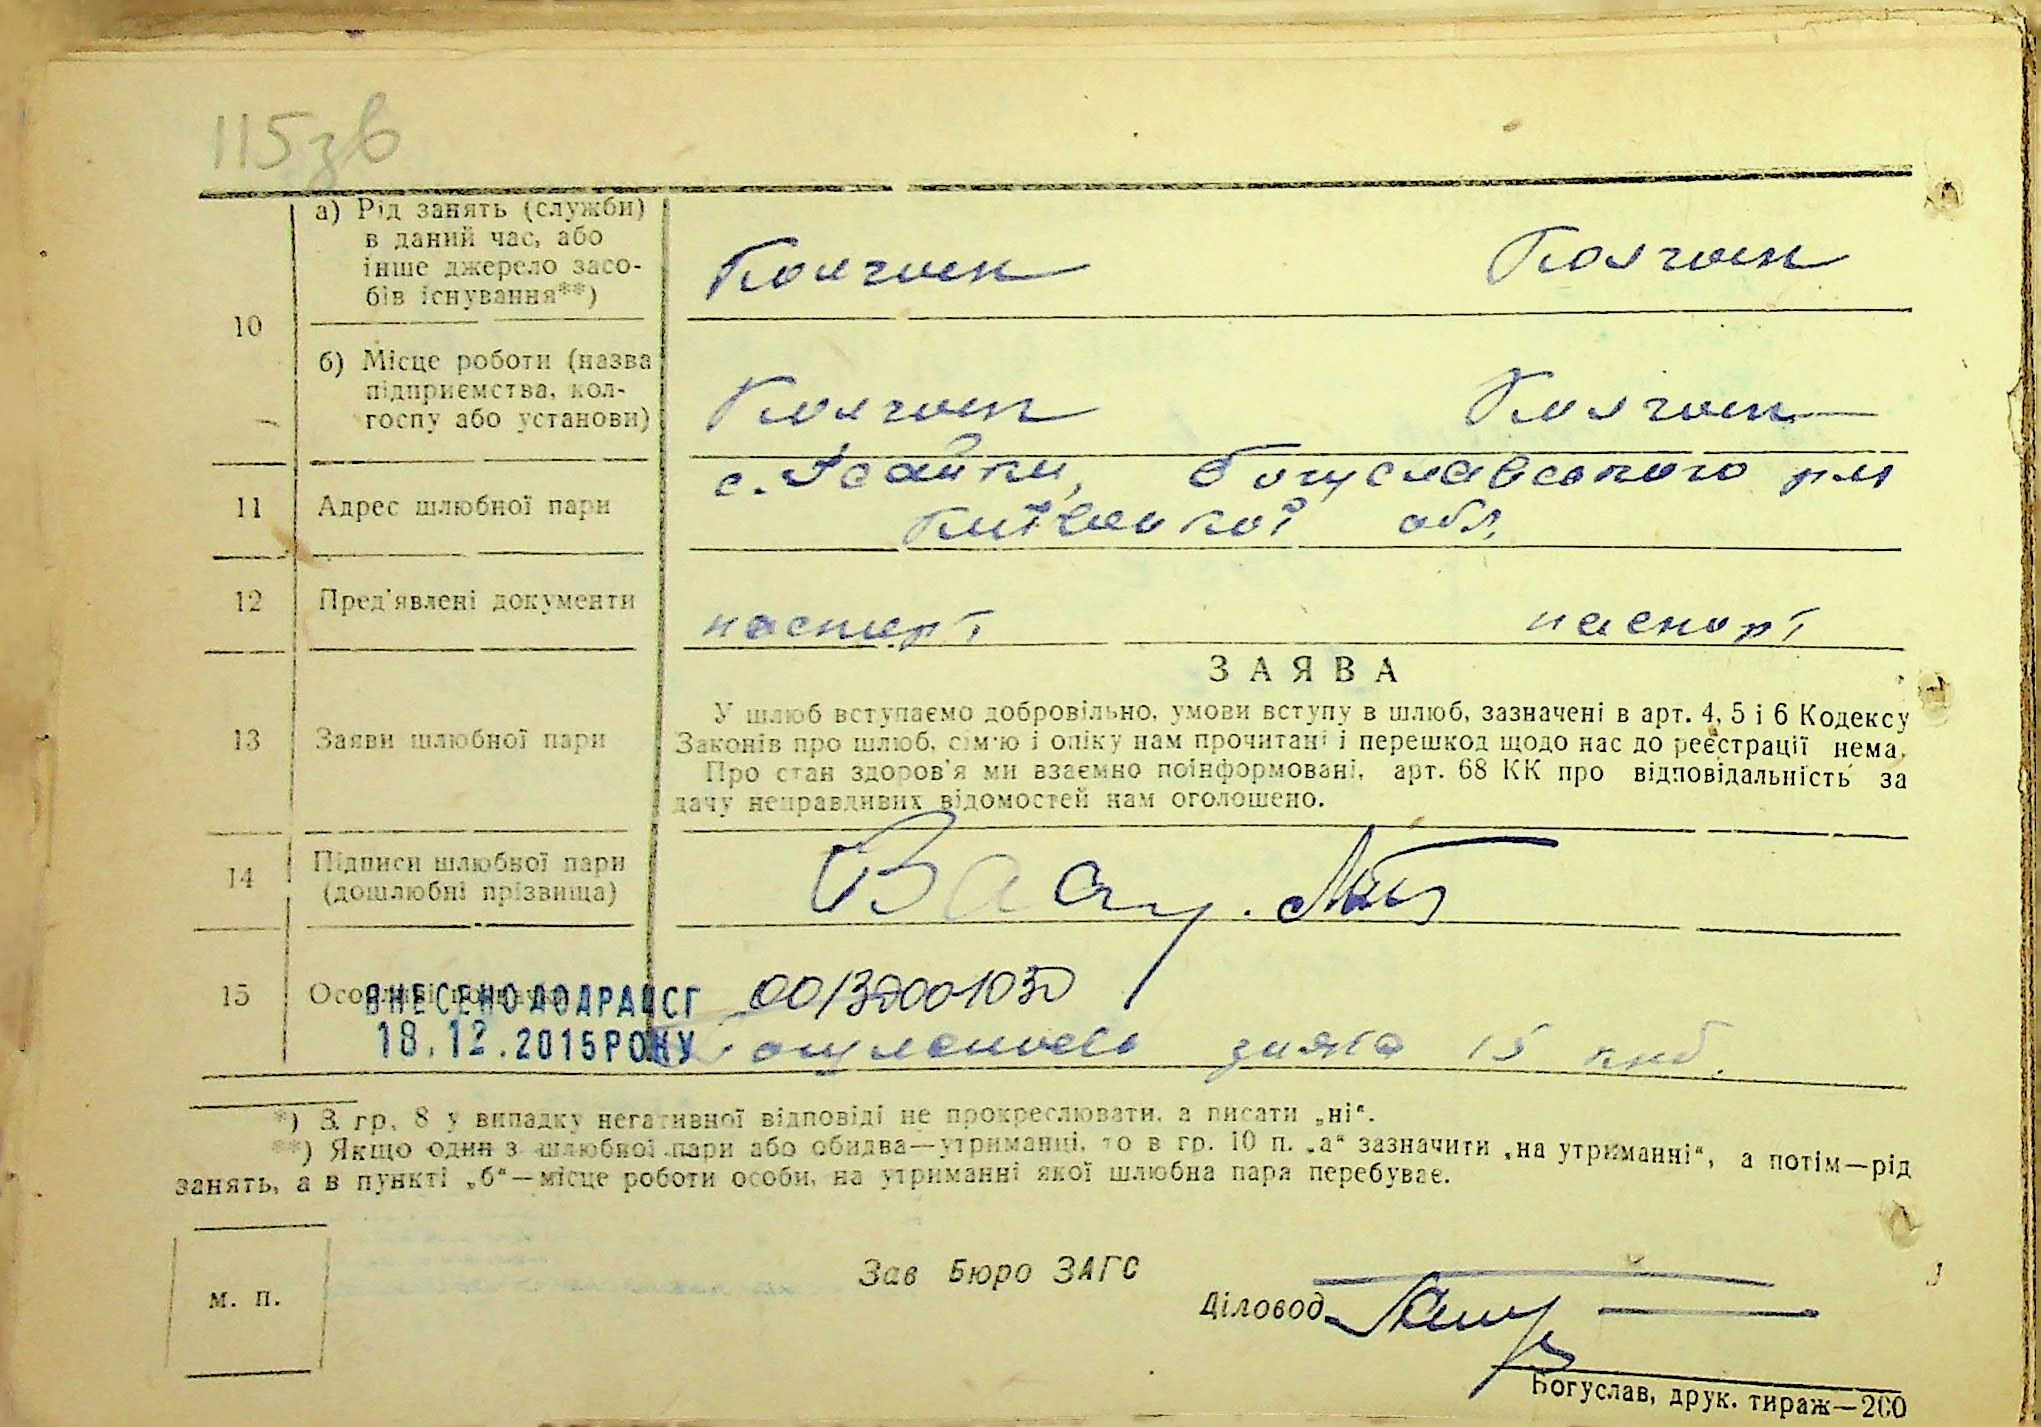 115 зв
а) Рід занять (служби)
в даний час, або
інше джерело засо-
бів існування**)
Колгосп Колгосп
10
б) Місце роботи (назва
підприємства, кол-
госпу або установи)
Колгосп Колгосп
11 Адрес шлюбної пари
с. Ісайки, Богуславського р-ну
Київської обл.
12 Пред'явлені документи паспорт паспорт
ЗАЯВА
13 Заяви шлюбної пари
У шлюб вступаємо добровільно, умови вступу в шлюб, зазначені в арт. 4, 5 і 6 Кодексу
Законів про шлюб, сім'ю і опіку нам прочитані і перешкод щодо нас до реєстрації нема.
Про стан здоров'я ми взаємно поінформовані, арт. 68 КК про відповідальність за
дачу неправдивих відомостей нам оголошено.
14 Підписи шлюбної пари
(дошлюбні прізвища)
15
ВНЕСЕНО ДО ДРАЦСГ
18.12.2015 РОКУ
00132001030
15 крб.
*) З гр. 8 у випадку негативної відповіді не прокреслювати, а писати „ні“.
**) Якщо один з шлюбної пари або обидва—утриманці, то в гр. 10 п. „а“ зазначити „на утриманні“, а потім—рід
занять, а в пункті „б“—місце роботи особи, на утриманні якої шлюбна пара перебуває.
м. п.
Зав Бюро ЗАГС
Діловод
Богуслав, друк. тираж—200